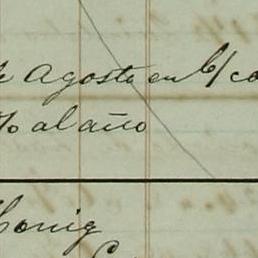 Agosto en C/co
% al año
Konig